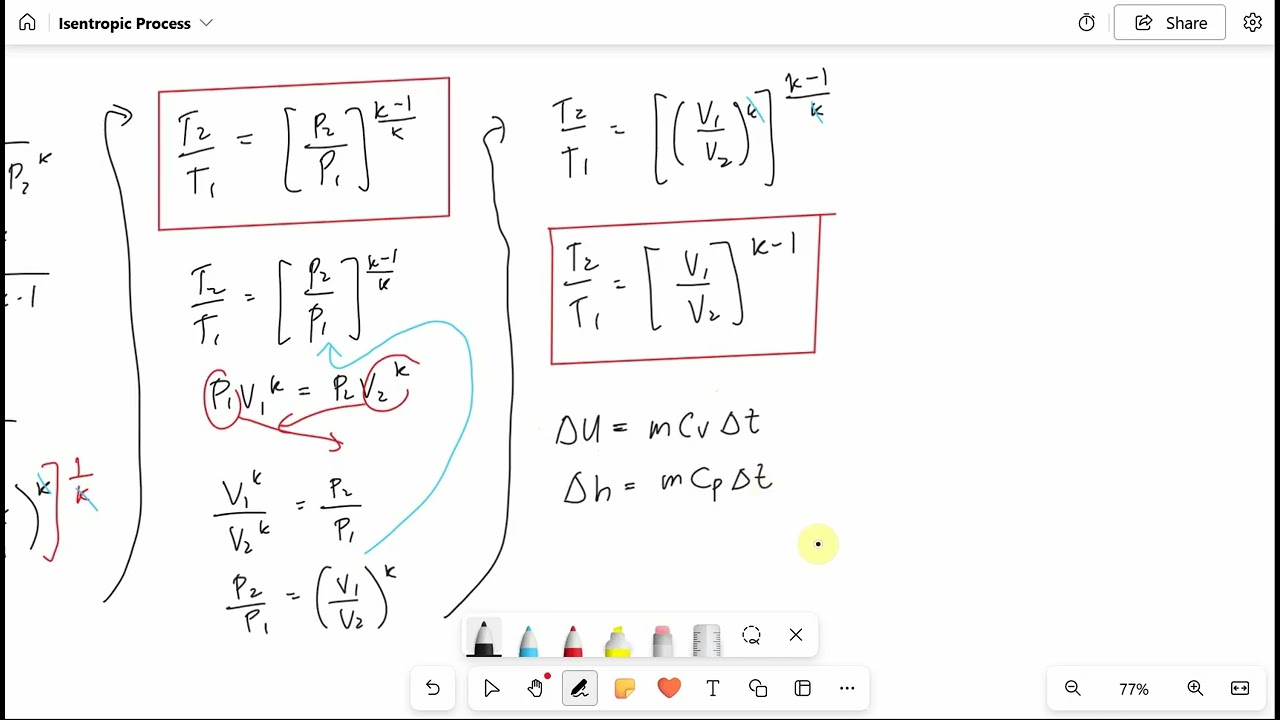 Isentropic Process
Share
P₂ᵏ
k-1
k ] 1/k
T₂/T₁ = [P₂/P₁]^(k-1)/k
T₂/T₁ = [P₂/P₁]^(k-1)/k
P₁V₁ᵏ = P₂V₂ᵏ
V₁ᵏ/V₂ᵏ = P₂/P₁
P₂/P₁ = (V₁/V₂)ᵏ
T₂/T₁ = [(V₁/V₂)ᵏ]^(k-1)/k
T₂/T₁ = [V₁/V₂]^k-1
ΔU = mCvΔt
Δh = mCpΔt
T
77%